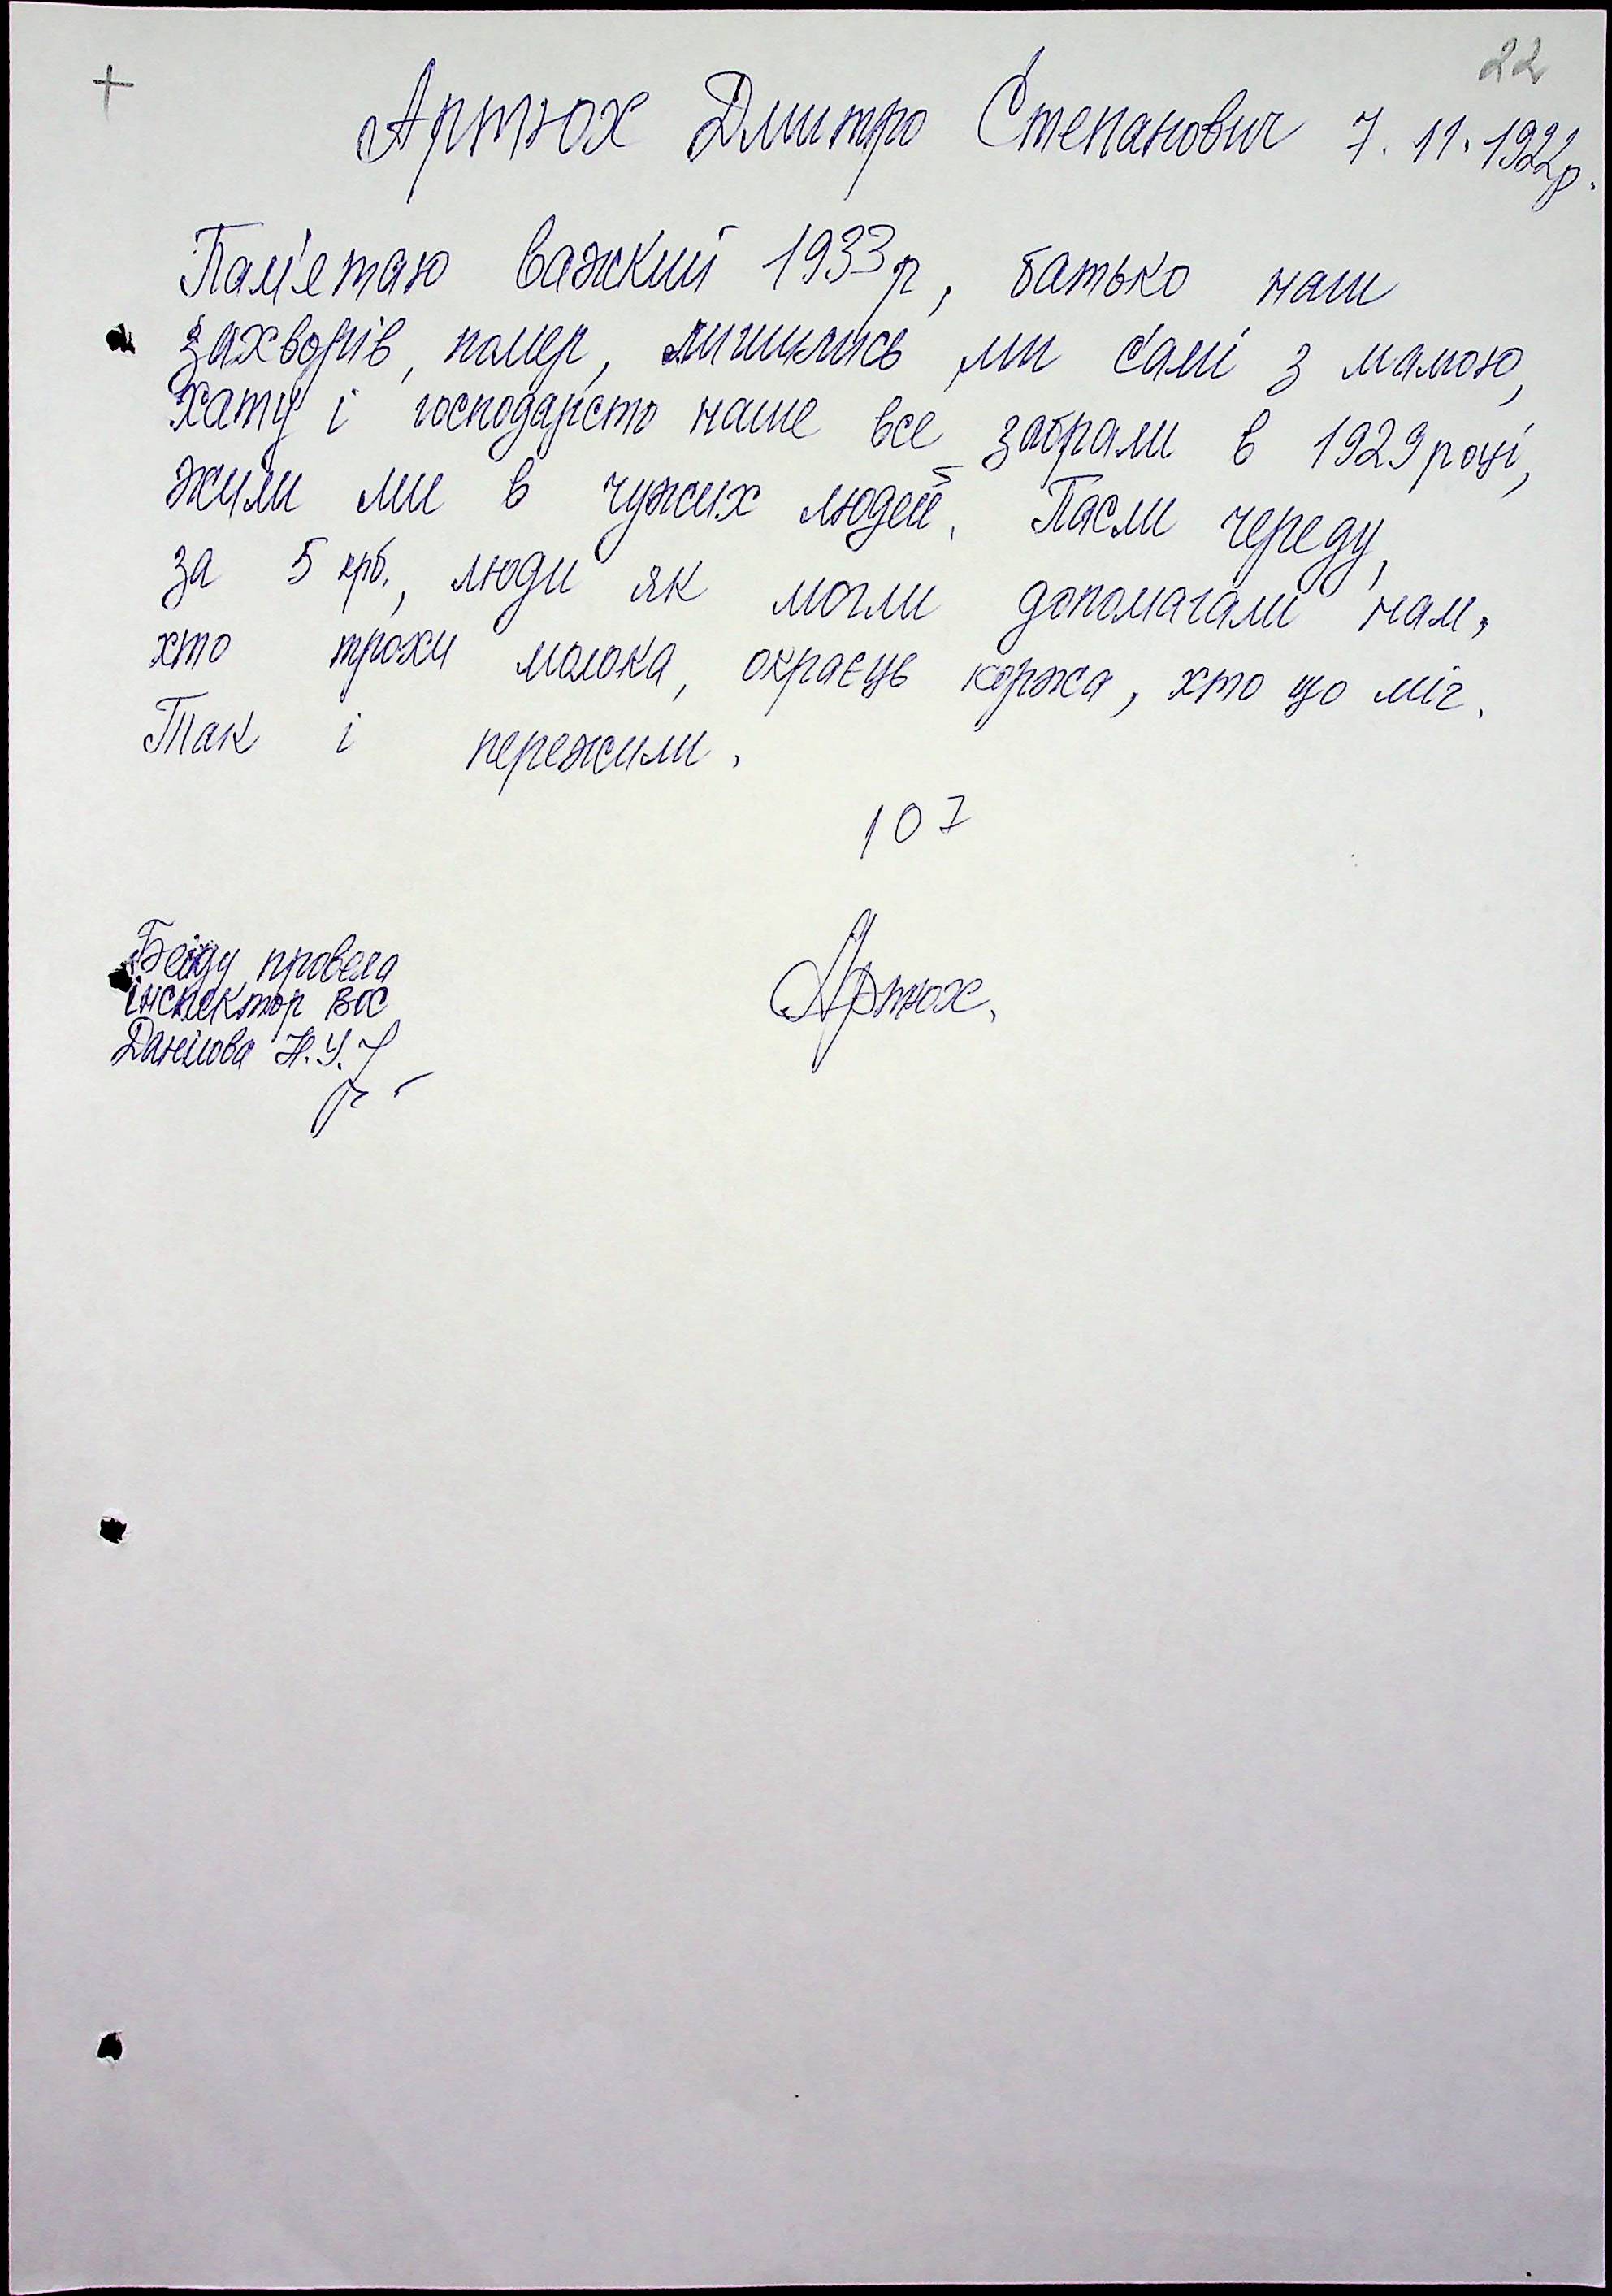 22
+
Артюх Дмитро Степанович 7.11.1922р.
Пам'ятаю важкий 1933р, батько наш
захворів, помер, лишились ми самі з мамою,
хату і господарсто наше все забрали в 1929 році,
жили ми в чужих людей. Пасли череду,
за 5 крб., люди як могли допомагали нам,
хто трохи молока, окраєць коржа, хто що міг.
Так і пережили.
107
Бесіду провела
інспектор ВОС
Данілова Н.У.
Артюх.